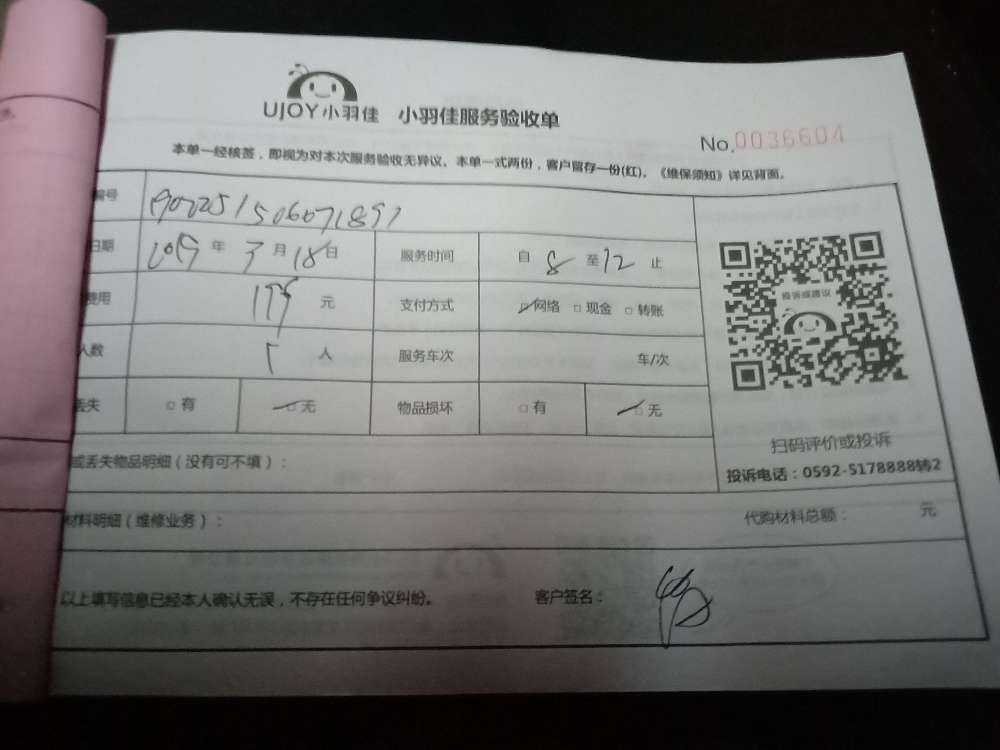 UJOY小羽佳 小羽佳服务验收单
No.0036604
本单一经核签，即视为对本次服务验收无异议。本单一式两份，客户留存一份(红)。《维保须知》详见背面。
编号
日期 2019 年 3 月 18 日 服务时间 自 8 至 12 止
费用 元 支付方式 网络 现金 转账
人数 人 服务车次 车/次
丢失 有 无 物品损坏 有 无
投诉或建议
扫码评价或投诉
投诉电话：0592-5178888转2
或丢失物品明细（没有可不填）：
材料明细（维修业务）： 代购材料总额： 元
以上填写信息已经本人确认无误，不存在任何争议纠纷。 客户签名：